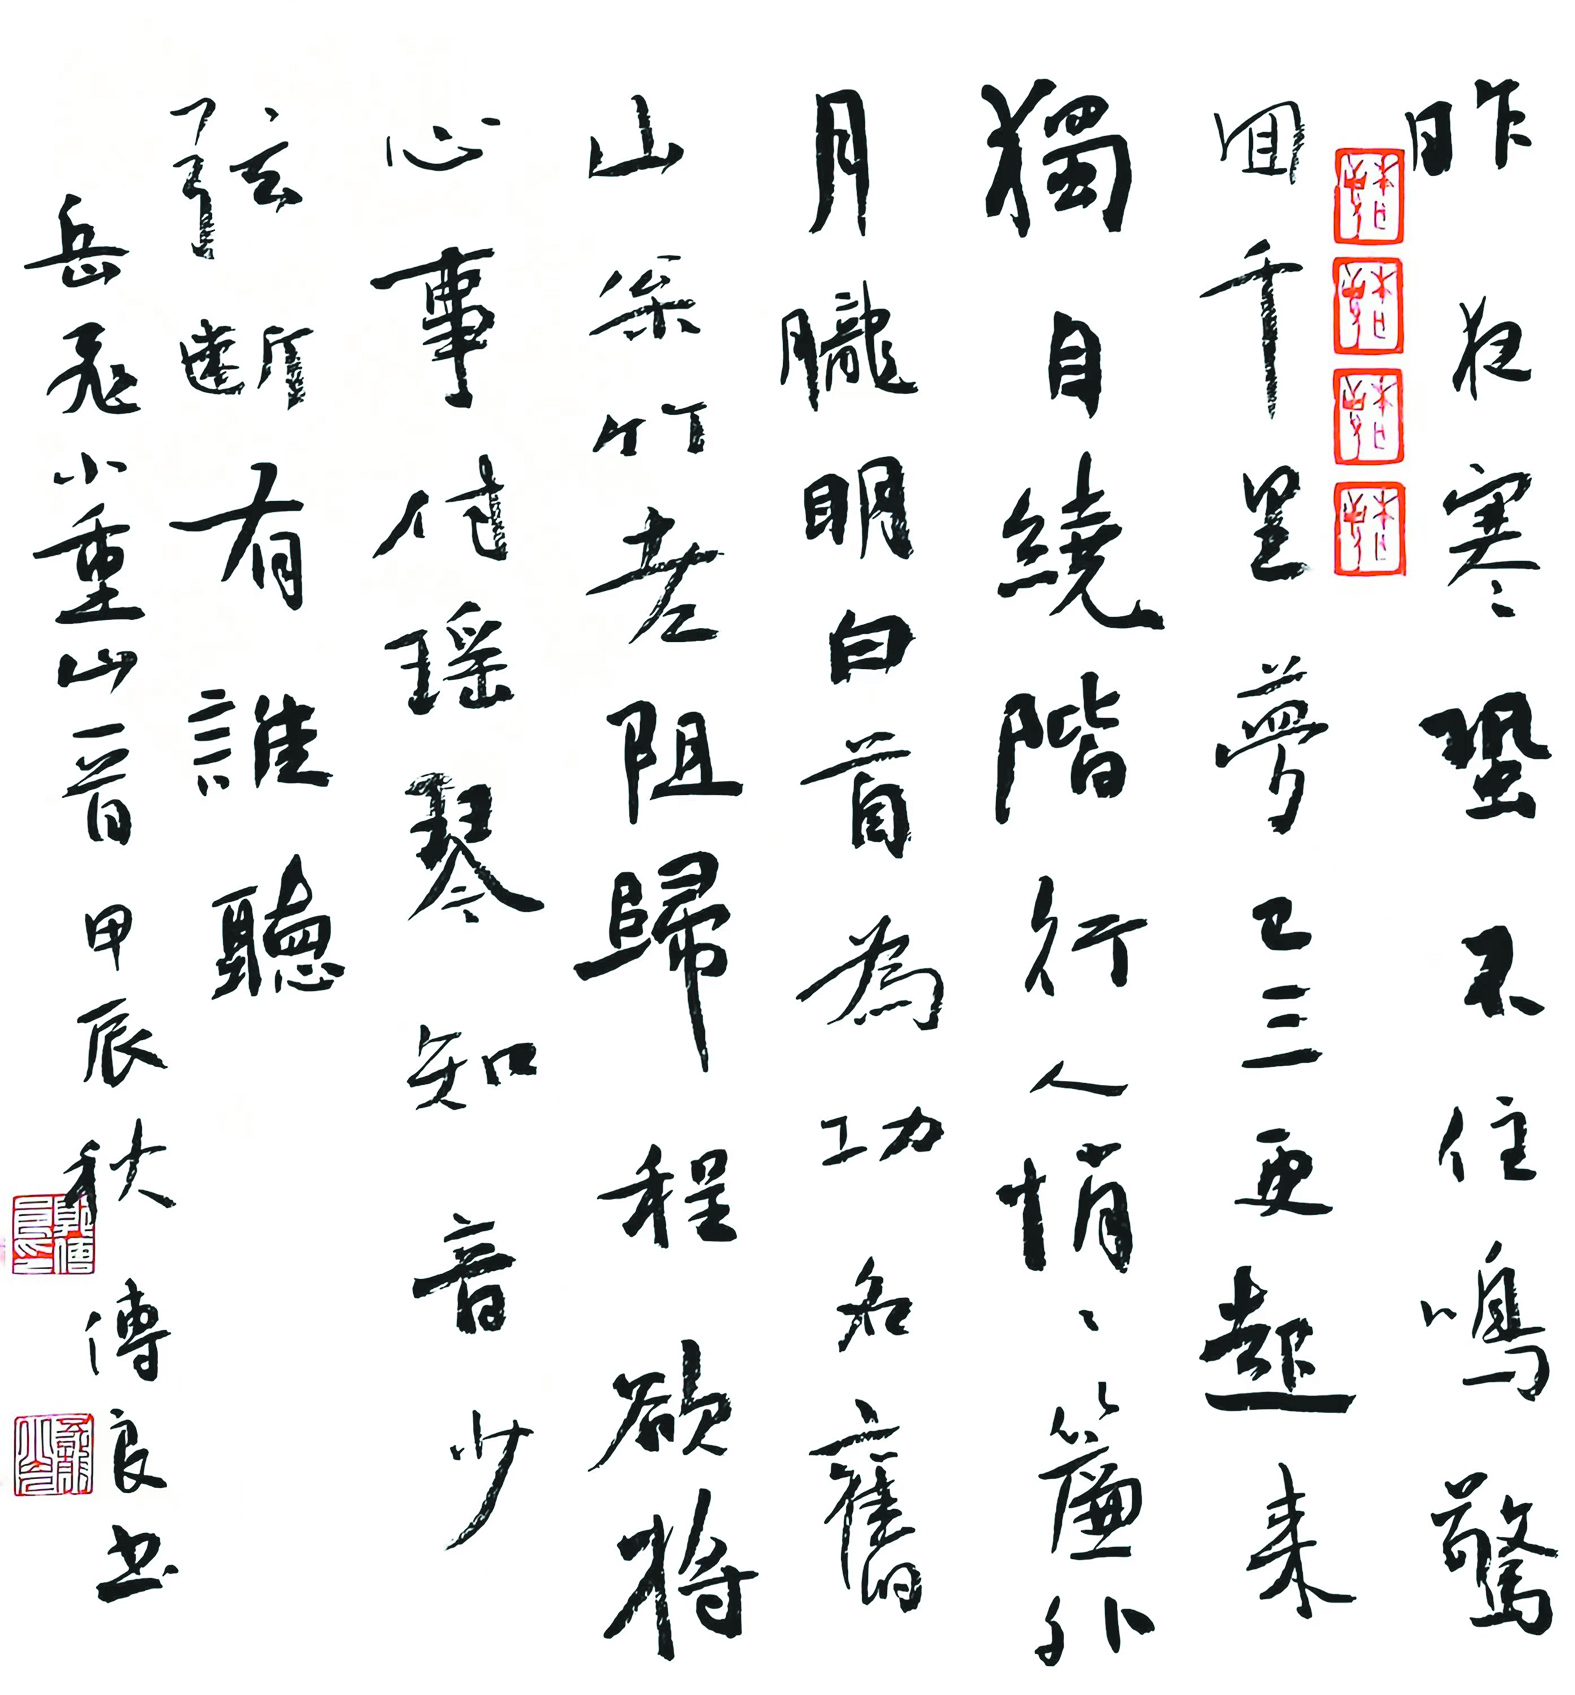 昨夜寒蛩不住鳴驚
回千里夢已三更起来
獨自繞階行人悄〻簾外
月朧明白首為功名舊
山枀竹老阻歸程欲將
心事付瑶琴知音少
弦断有誰聽
岳飛小重山一首 甲辰秋 傳良书